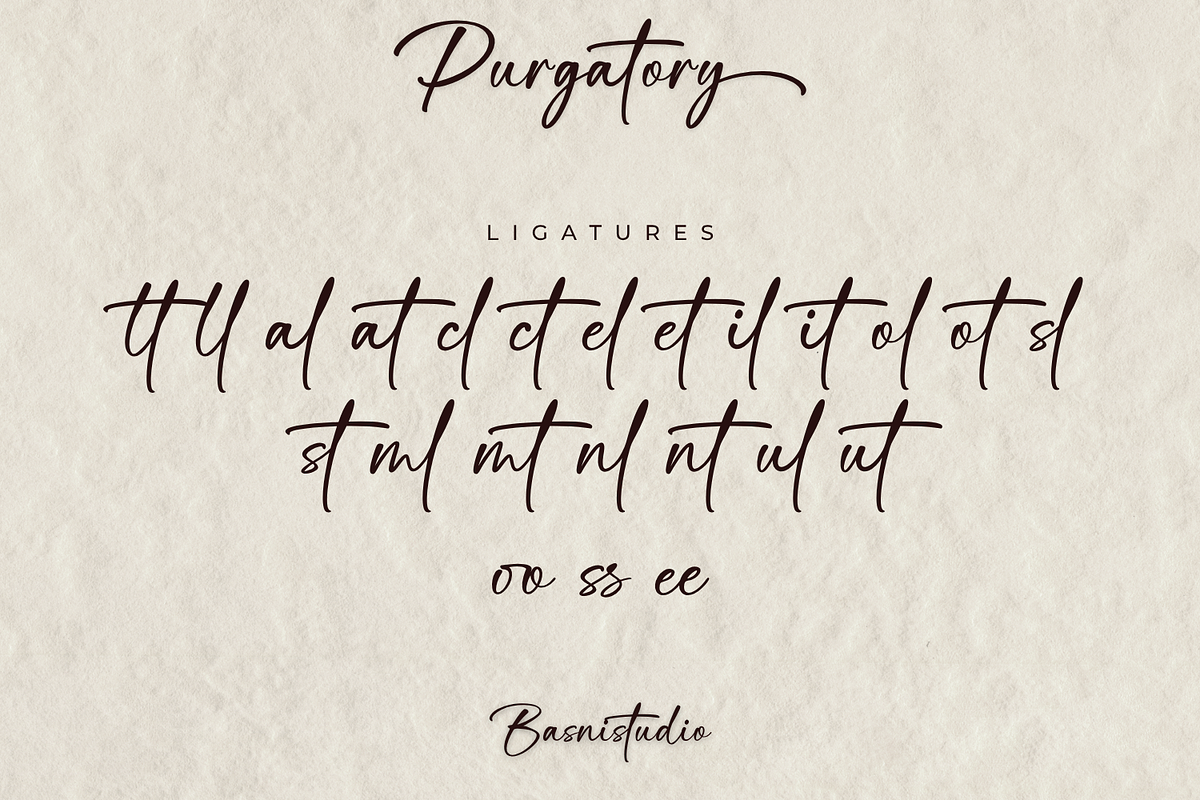 Purgatory
LIGATURES
tt ll al at cl ct el et il it ol ot sl
st ml mt nl nt ul ut
oo ss ee
Basnistudio